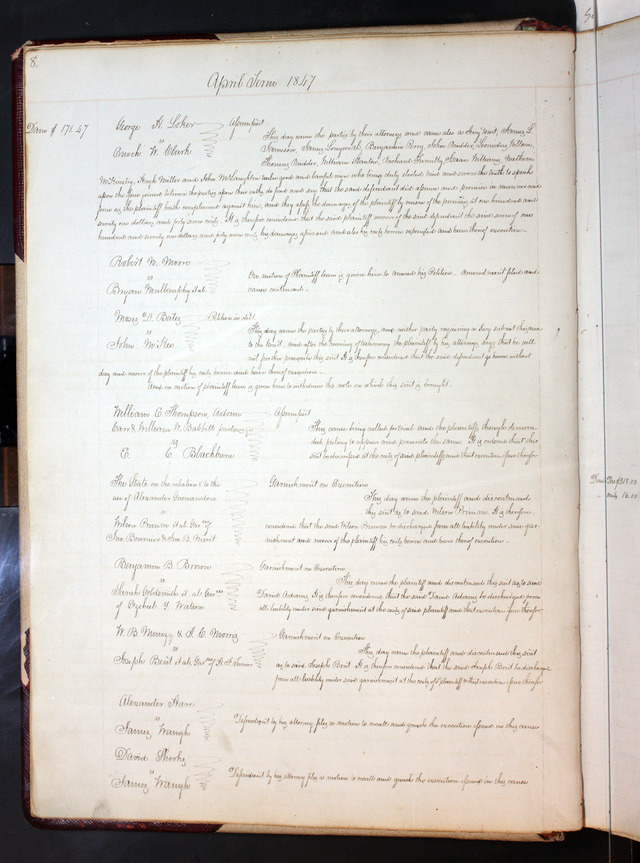 8.
April Term 1847
Dam $ 171.47
George H. Loker
vs
Enoch W. Clark
Assumpsit
This day came the parties by their attorneys and came also a Jury to wit, James L
Jameson, James Longworth, Benjamin Perry, John Rudder, Leonidas
Thomas Rudder, William Stanton, William
McKinley, Hugh Miller and John McLaughlin twelve good and lawful men who being duly elected tried and sworn the truth to speak
upon the issue joined between the parties upon their oaths do find and say that the said defendant did assume and promise in manner and
form as the plaintiff hath complained against him, and they assess the damages of the plaintiff by reason of the premises, at one hundred and
seventy one dollars and forty seven cents. It is therefore considered that the said plaintiff recover of the said defendant the said sum of one
hundred and seventy one dollars and forty seven cents, his damages aforesaid and also his costs herein expended and have thereof execution.
Robert N. Moore
vs
Bryan Mullanphy et al.
On motion of Plaintiff leave is given him to amend his Petition. amendment filed and
cause continued.
Moses D. Bates
vs
John McKee
Petition in debt.
This day came the parties by their attorneys, and neither party requiring a Jury submit this cause
to the Court, and after the hearing of testimony the plaintiff by his attorney says that he will
not further prosecute this suit It is therefore considered that the said defendant go hence without
day and recover of the plaintiff his costs herein and have thereof execution.
And on motion of plaintiff leave is given him to withdraw the note on which this suit is brought.
William C Thompson, Adam
Carr & William W. Babbitt partners &c
vs
C. C Blackburn
Assumpsit
This cause being called for trial and the plaintiffs though demand-
ded failing to appear and prosecute the same. It is ordered that this
suit be dismissed at the costs of said plaintiffs and that execution issue therefor
The State on the relation & to the
use of Alexander
vs
Wilson Primm et al. Gar. of
Jno. &
Garnishment on Execution
This day came the plaintiff and discontinued
this suit as to said Wilson Primm. It is therefore
considered that the said Wilson Primm be discharged from all liability under said gar-
nishment and recover of the plaintiff his costs herein and have thereof execution.
Benjamin B. Brown
vs
Sarah Goldsmith et al. Gar
of Ezekiel Y. Watson
Garnishment on Execution.
This day came the plaintiff and discontinued this suit as to said
David Adams, It is therefore considered that the said David Adams be discharged from
all liability under said garnishment at the costs of said plaintiff and that execution issue therefor.
W. B. & A. C. Morris
vs
Joseph Bent et als. Gar. of
Garnishment on Execution.
This day came the plaintiff and discontinued this suit
as to said Joseph Bent It is therefore considered that the said Joseph Bent be discharged
from all liability under said garnishment at the costs of sd plaintiff & that execution issue therefor
Alexander Hare
vs
James Waugh
Defendant by his attorney files a motion to recall and quash the execution issued in this cause
David
vs
James Waugh
Defendant by his attorney files a motion to recall and quash the execution issued in this cause